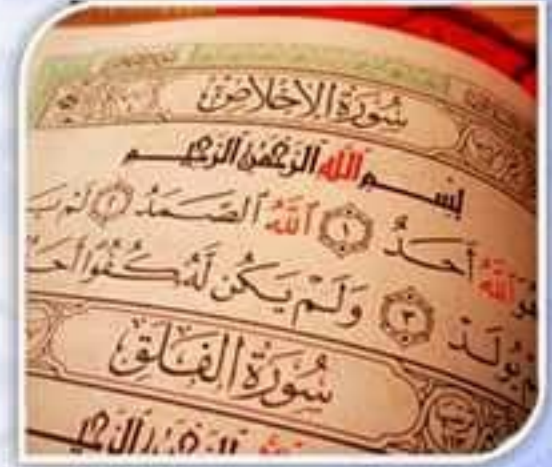 سُورَةُ الإِخْلَاصِ
بِسْمِ ٱللَّهِ ٱلرَّحْمَٰنِ ٱلرَّحِيمِ
هُوَ ٱللَّهُ أَحَدٌ ١ ٱللَّهُ ٱلصَّمَدُ ٢ لَمْ يَـ
يُولَدْ ٣ وَلَمْ يَكُن لَّهُ كُفُوًا أَحَـ
سُورَةُ الفَلَقِ